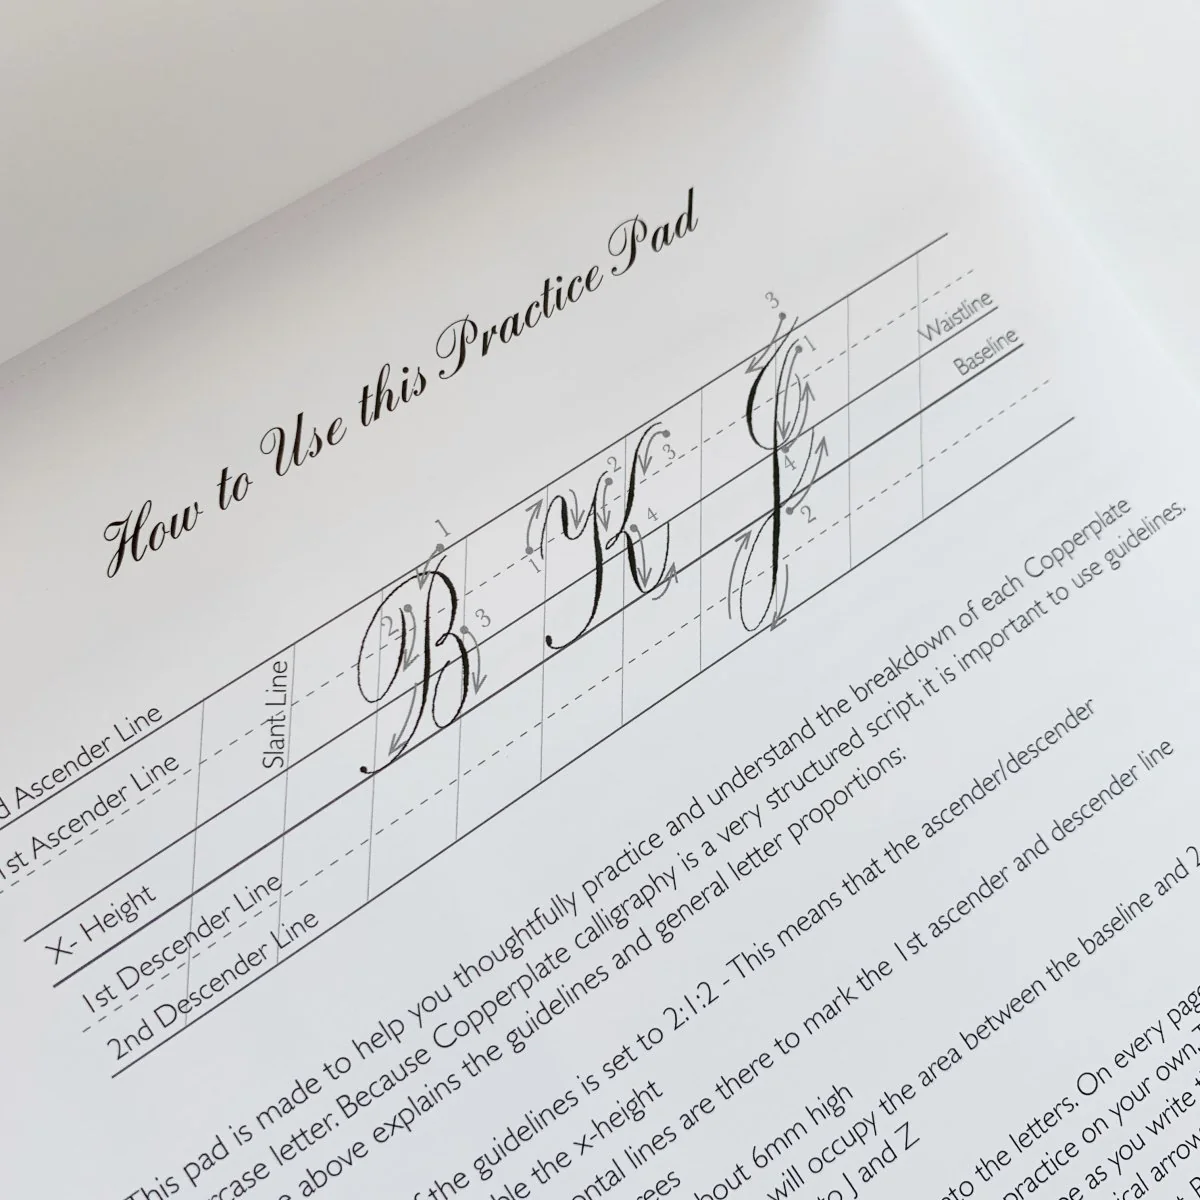 How to Use this Practice Pad
d Ascender Line
1st Ascender Line
Slant Line
X- Height
1st Descender Line
2nd Descender Line
Waistline
Baseline
B K J
1
2
3
1
2
3
4
3
1
4
2
This pad is made to help you thoughtfully practice and understand the breakdown of each Copperplate
rcase letter. Because Copperplate calligraphy is a very structured script, it is important to use guidelines.
e above explains the guidelines and general letter proportions:
f the guidelines is set to 2:1:2 - This means that the ascender/descender
ble the x-height
ontal lines are there to mark the 1st ascender and descender line
rees
bout 6mm high
will occupy the area between the baseline and 2
to J and Z
nto the letters. On every pag
practice on your own.
pe as you write t
ical arrow